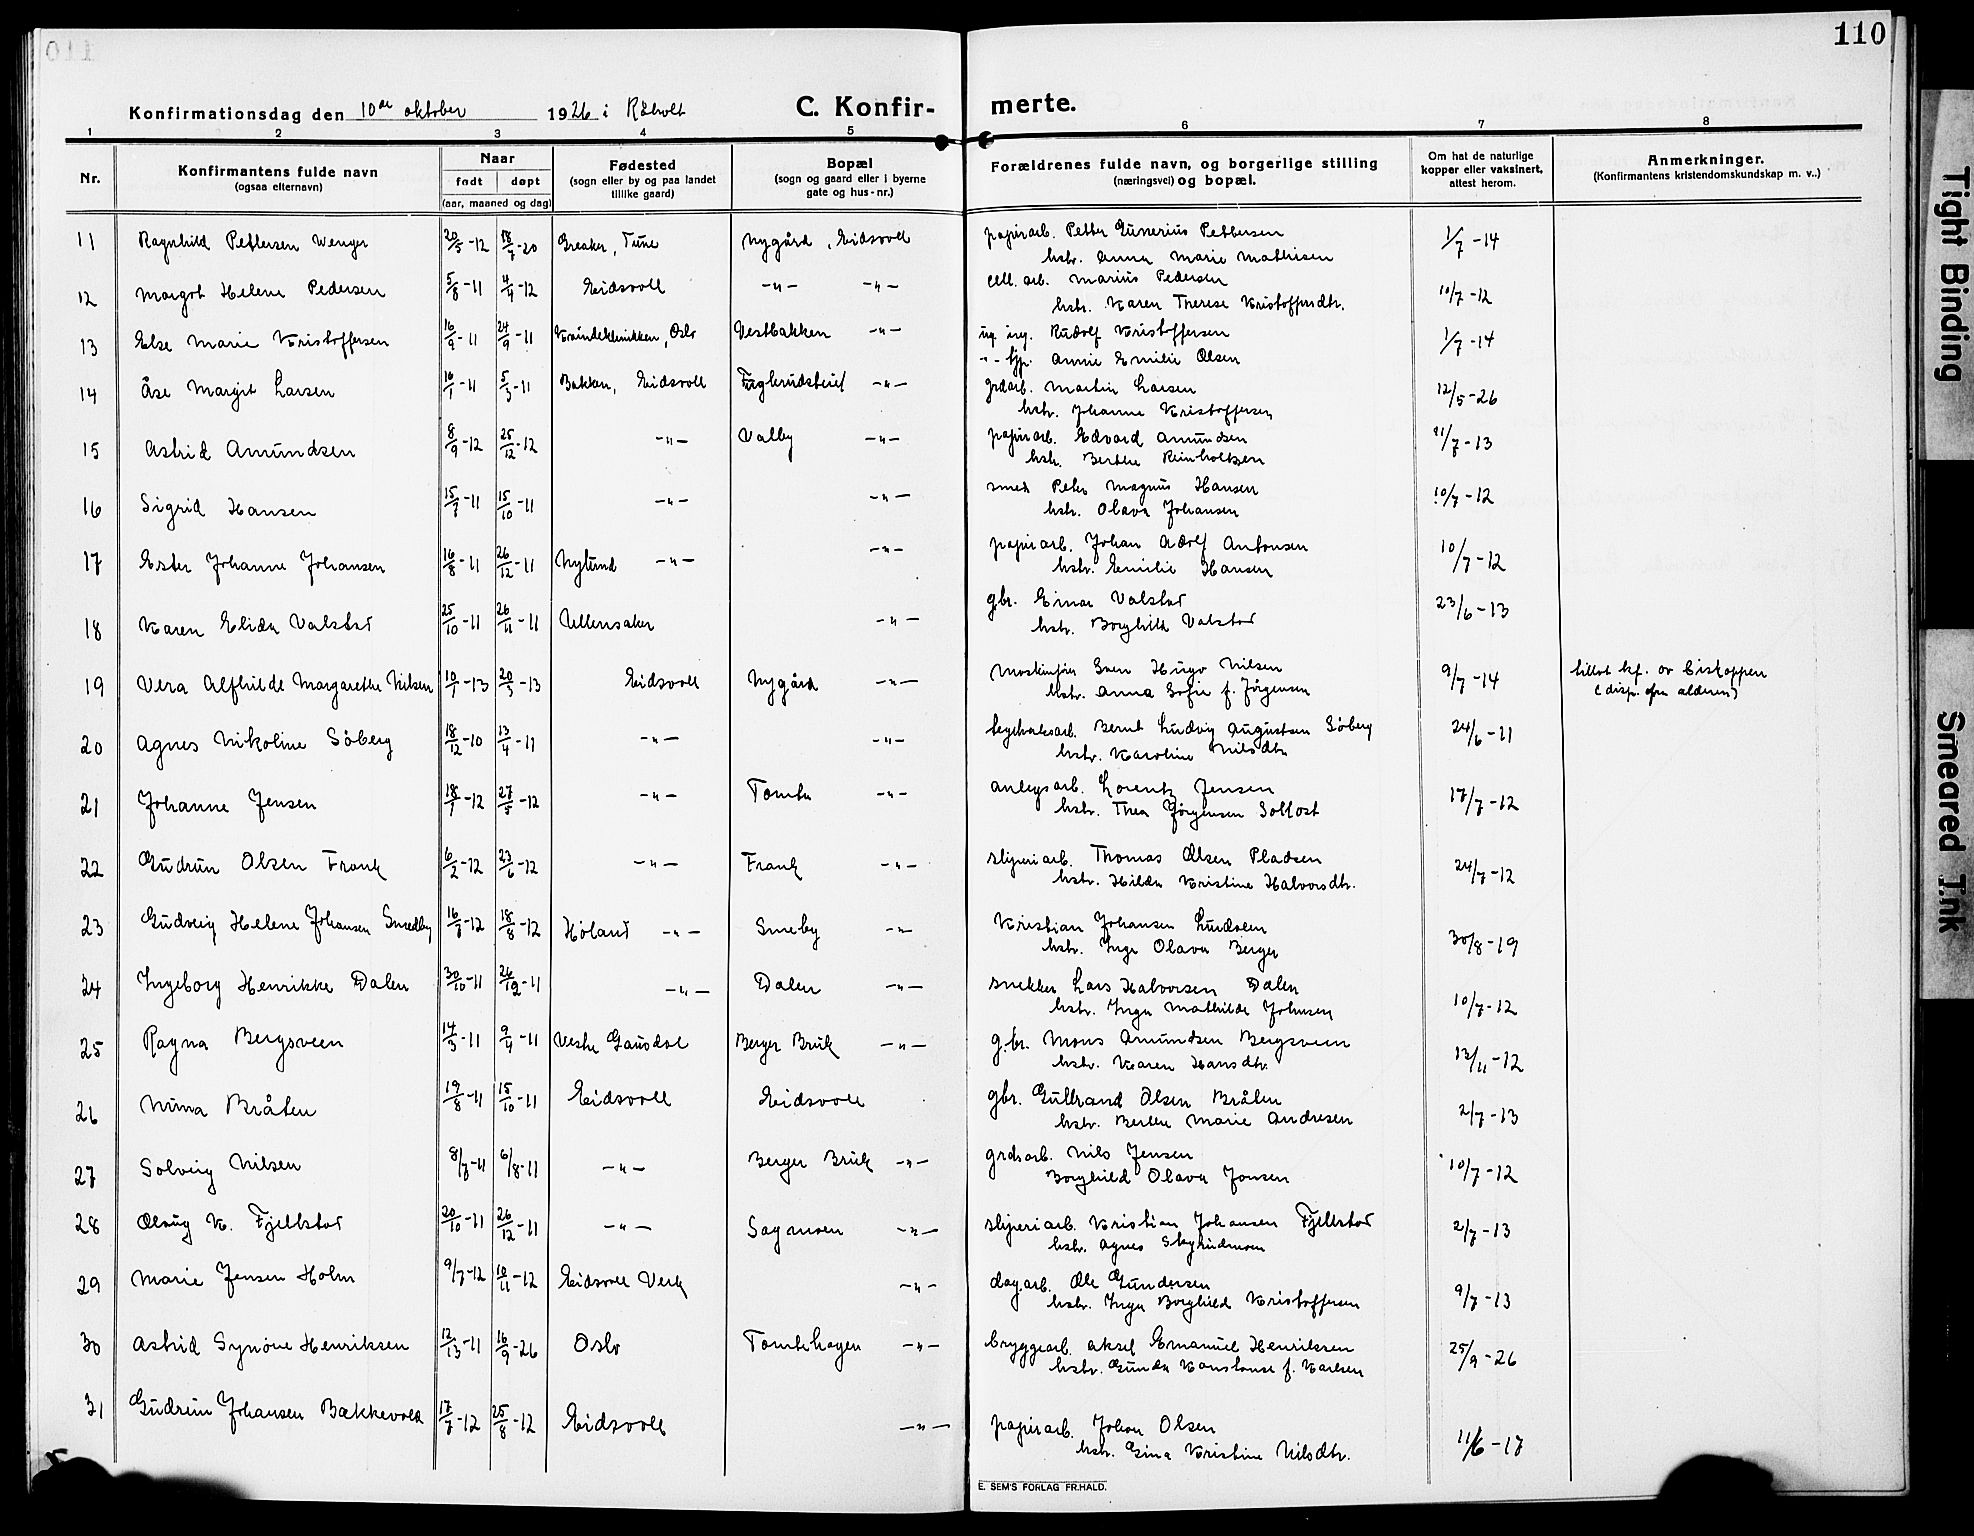 110
Konfirmationsdag den 10de oktober 1926 i Råholt
C. Konfir- merte.
1 2 3 4 5 6 7 8
Nr.
Konfirmantens fulde navn
(ogsaa elternavn)
Naar
født døpt
(aar, maaned og dag)
Fødested
(sogn eller by og paa landet
tillike gaard)
Bopæl
(sogn og gaard eller i byerne
gate og hus-nr.)
Forældrenes fulde navn, og borgerlige stilling
(næringsvei) og bopæl.
Om hat de naturlige
kopper eller vaksinert,
attest herom.
Anmerkninger.
(Konfirmantens kristendomskundskap m. v..)
11 Ragnhild Pettersen Wenger 20/5-12 18/7-20 Greaker, Tune Nygård, Eidsvoll papirarb. Petter Gunerius Pettersen 1/7-14
hstr. Anna Marie Mathisen
12 Margot Helene Pedersen 5/8-11 4/4-12 Eidsvoll -"- -"- cell. arb. Marius Pedersen 10/7-12
hstr. Karen Therese Kristoffersdtr.
13 Else Marie Kristoffersen 16/9-11 24/9-11 Kvindeklinikken, Oslo Vestbakken -"- ug. ing. Rudolf Kristoffersen 1/7-14
-"- Annie Emilie Olsen
14 Åse Margit Larsen 16/1-11 5/3-11 Bakken, Eidsvoll -"- grdarb. Martin Larsen 12/5-26
hstr. Johanne Kristoffersen
15 Astrid Amundsen 8/9-12 25/12-12 -"- Valby -"- papirarb. Edvard Amundsen 21/7-13
hstr. Berthe Reinholtsen
16 Sigrid Hansen 15/7-11 15/10-11 -"- -"- smed Peter Magnus Hansen 10/7-12
hstr. Olava Johansen
17 Ester Johanne Johansen 16/8-11 26/12-11 Nylund -"- -"- papirarb. Johan Adolf Antonsen 10/7-12
hstr. Emilie Hansen
18 Karen Elida Valstad 25/10-11 26/11-11 Ullensaker -"- gbr. Einar Valstad 23/6-13
hstr. Borghild Valstad
19 Vera Alfhilde Margarethe Nilsen 10/1-13 20/3-13 Eidsvoll Nygård -"- Maskinfører Sven Hugo Nilsen 9/7-14 tillat kf. av biskoppen
hstr. Anna Sofie f. Jørgensen (disp. fra alderen)
20 Agnes Nikoline Søberg 18/12-10 13/4-11 -"- -"- teglverksarb. Bernt Ludvig Augustsen Søberg 24/6-11
hstr. Karoline Nilsdtr.
21 Johanne Jensen 18/1-12 27/5-12 -"- Tomta -"- anlegsarb. Lorentz Jensen 17/7-12
hstr. Thea Jørgensen Solfost
22 Gudrun Olsen Frank 6/2-12 23/6-12 -"- Frank -"- sliperiarb. Thomas Olsen Pladsen 24/7-12
hstr. Hilda Kristine Halvorsdtr.
23 Gudveig Helene Johansen Smedby 16/7-12 18/8-12 Høland -"- Smeby -"- Kristian Johansen Lundsveen 30/8-19
hstr. Inga Olava Berger
24 Ingeborg Henrikke Dalen 30/10-11 26/12-11 -"- Dalen -"- snekker Lars Halvorsen Dalen 10/7-12
hstr. Inga Mathilde Johnsen
25 Ragna Bergsveen 14/3-11 9/4-11 Vestre Gausdal Berger Bruk -"- g.br. Mons Amundsen Bergsveen 13/11-12
hstr. Karen Hansdtr.
26 Nina Bråten 19/8-11 15/10-11 Eidsvoll Eidsvoll gbr. Gulbrand Olsen Bråten 2/7-13
hstr. Berthe Marie Andresen
27 Solveig Nilsen 8/7-11 6/8-11 -"- Berger Bruk -"- grdsarb. Nils Jensen 10/7-12
Borghild Olava Jonsen
28 Olaug K. Fjellstad 20/10-11 26/12-11 -"- Sagmoen -"- sliperiarb. Kristian Johansen Fjellstad 2/7-13
hstr. Agnes Skyrudmoen
29 Marie Jensen Holm 9/7-12 10/11-12 Eidsvoll Verk -"- dag.arb. Ole Gundersen 9/7-13
hstr. Inga Borghild Kristoffersen
30 Astrid Synøve Henriksen 12/13-11 16/9-26 Oslo Tomtehagen -"- bryggearb. Aksel Emanuel Henriksen 25/9-26
hstr. Gunda Konstanse f. Karlsen
31 Gudrun Johansen Bækkevold 17/7-12 25/8-12 Eidsvoll -"- papirarb. Johan Olsen 11/6-17
hstr. Gina Kristine Nilsdtr.
E. SEM'S FORLAG FR.HALD.
Tight Binding
Smeared Ink